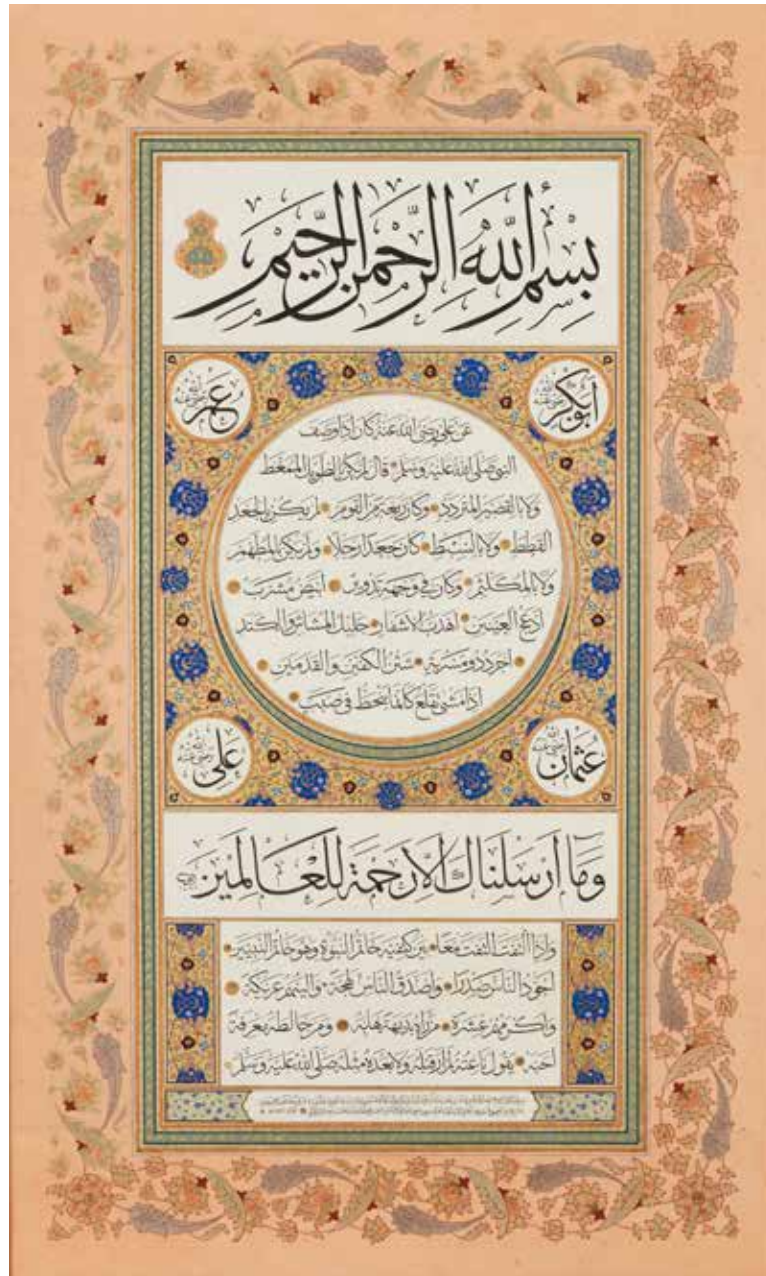 بِسْمِ اللّٰهِ الرَّحْمٰنِ الرَّحِيْمِ
ابوبكر رضي الله عنه
عمر رضي الله عنه
عن علي رضي الله عنه كان اذا وصف
النبي صلى الله عليه وسلم قال لم يكن بالطويل الممغط
ولا بالقصير المتردد وكان ربعة من القوم لم يكن بالجعد
القطط ولا بالسبط كان جعدا رجلا ولم يكن بالمطهم
ولا بالمكلثم وكان في وجهه تدوير ابيض مشرب
ادعج العينين اهدب الاشفار جليل المشاش والكتد
اجرد ذو مسربة شثن الكفين والقدمين
اذا مشى تقلع كانما ينحط في صبب
عثمان رضي الله عنه
علي رضي الله عنه
وَمَا اَرْسَلْنَاكَ اِلَّا رَحْمَةً لِلْعَالَمِيْنَ
واذا التفت التفت معا بين كتفيه خاتم النبوة وهو خاتم النبيين
اجود الناس صدرا واصدق الناس لهجة والينهم عريكة
واكرمهم عشرة من رآه بديهة هابه ومن خالطه معرفة
احبه يقول ناعته لم ار قبله ولا بعده مثله صلى الله عليه وسلم